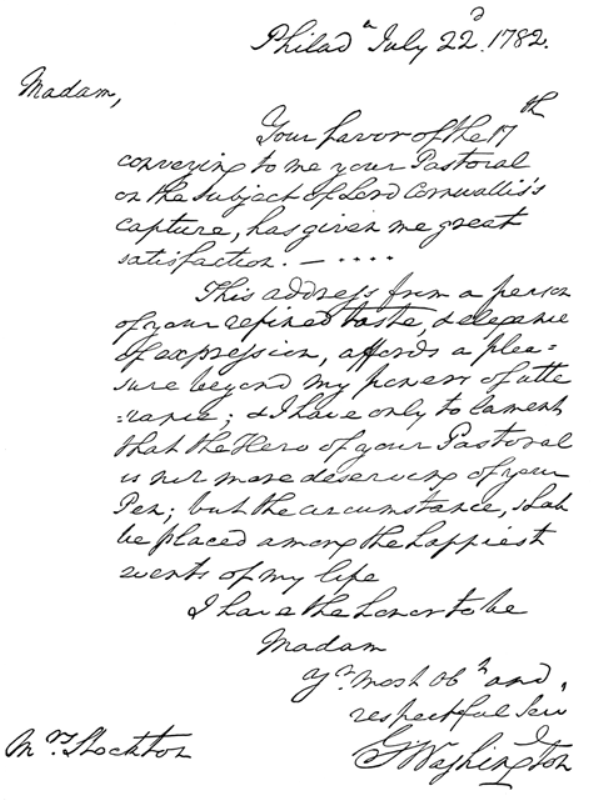 Philadᵃ July 22ᵈ. 1782.
Madam,
Your favor of the 17ᵗʰ
conveying to me your Pastoral
on the subject of Lord Cornwallis's
capture, has given me great
satisfaction. — ....
This address from a person
of your refined taste, & elegance
of expression, affords a plea=
sure beyond my powers of utte
=rance; & I have only to lament
that the Hero of your Pastoral
is not more deserving of your
Pen; but the circumstance, shall
be placed among the happiest
events of my life
I have the honor to be
Madam
Yʳ. most obᵗ and
respectful Serv
Mʳˢ Stockton
G Washington